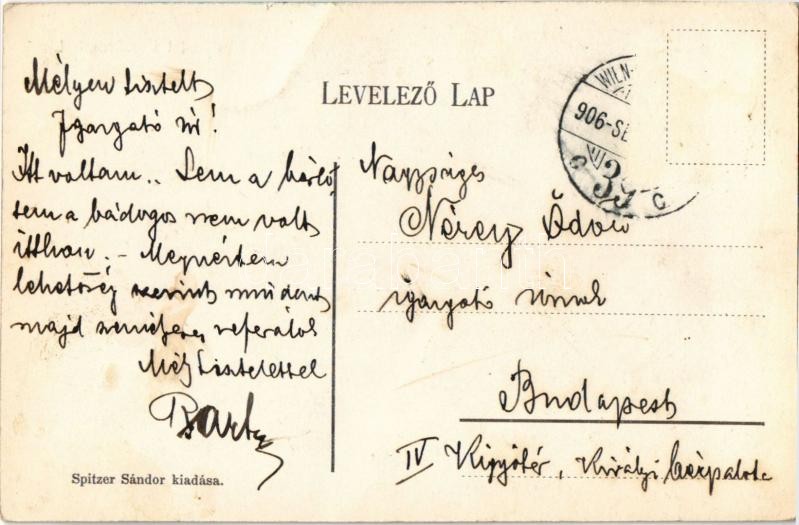 Mélyen tisztelt
Igazgató úr!
Itt voltam.. Sem a bérlő
sem a bádogos nem volt
itthon. – Megnéztem
lehetőség szerint mindent
majd személyesen referálok
Mély tisztelettel
Spitzer Sándor kiadása.
LEVELEZŐ LAP
WIEN
906-SE
39
C
Nagyságos
Nérey Ödön
igazgató úrnak
Budapest
IV Kigyótér, Királyi bérpalota